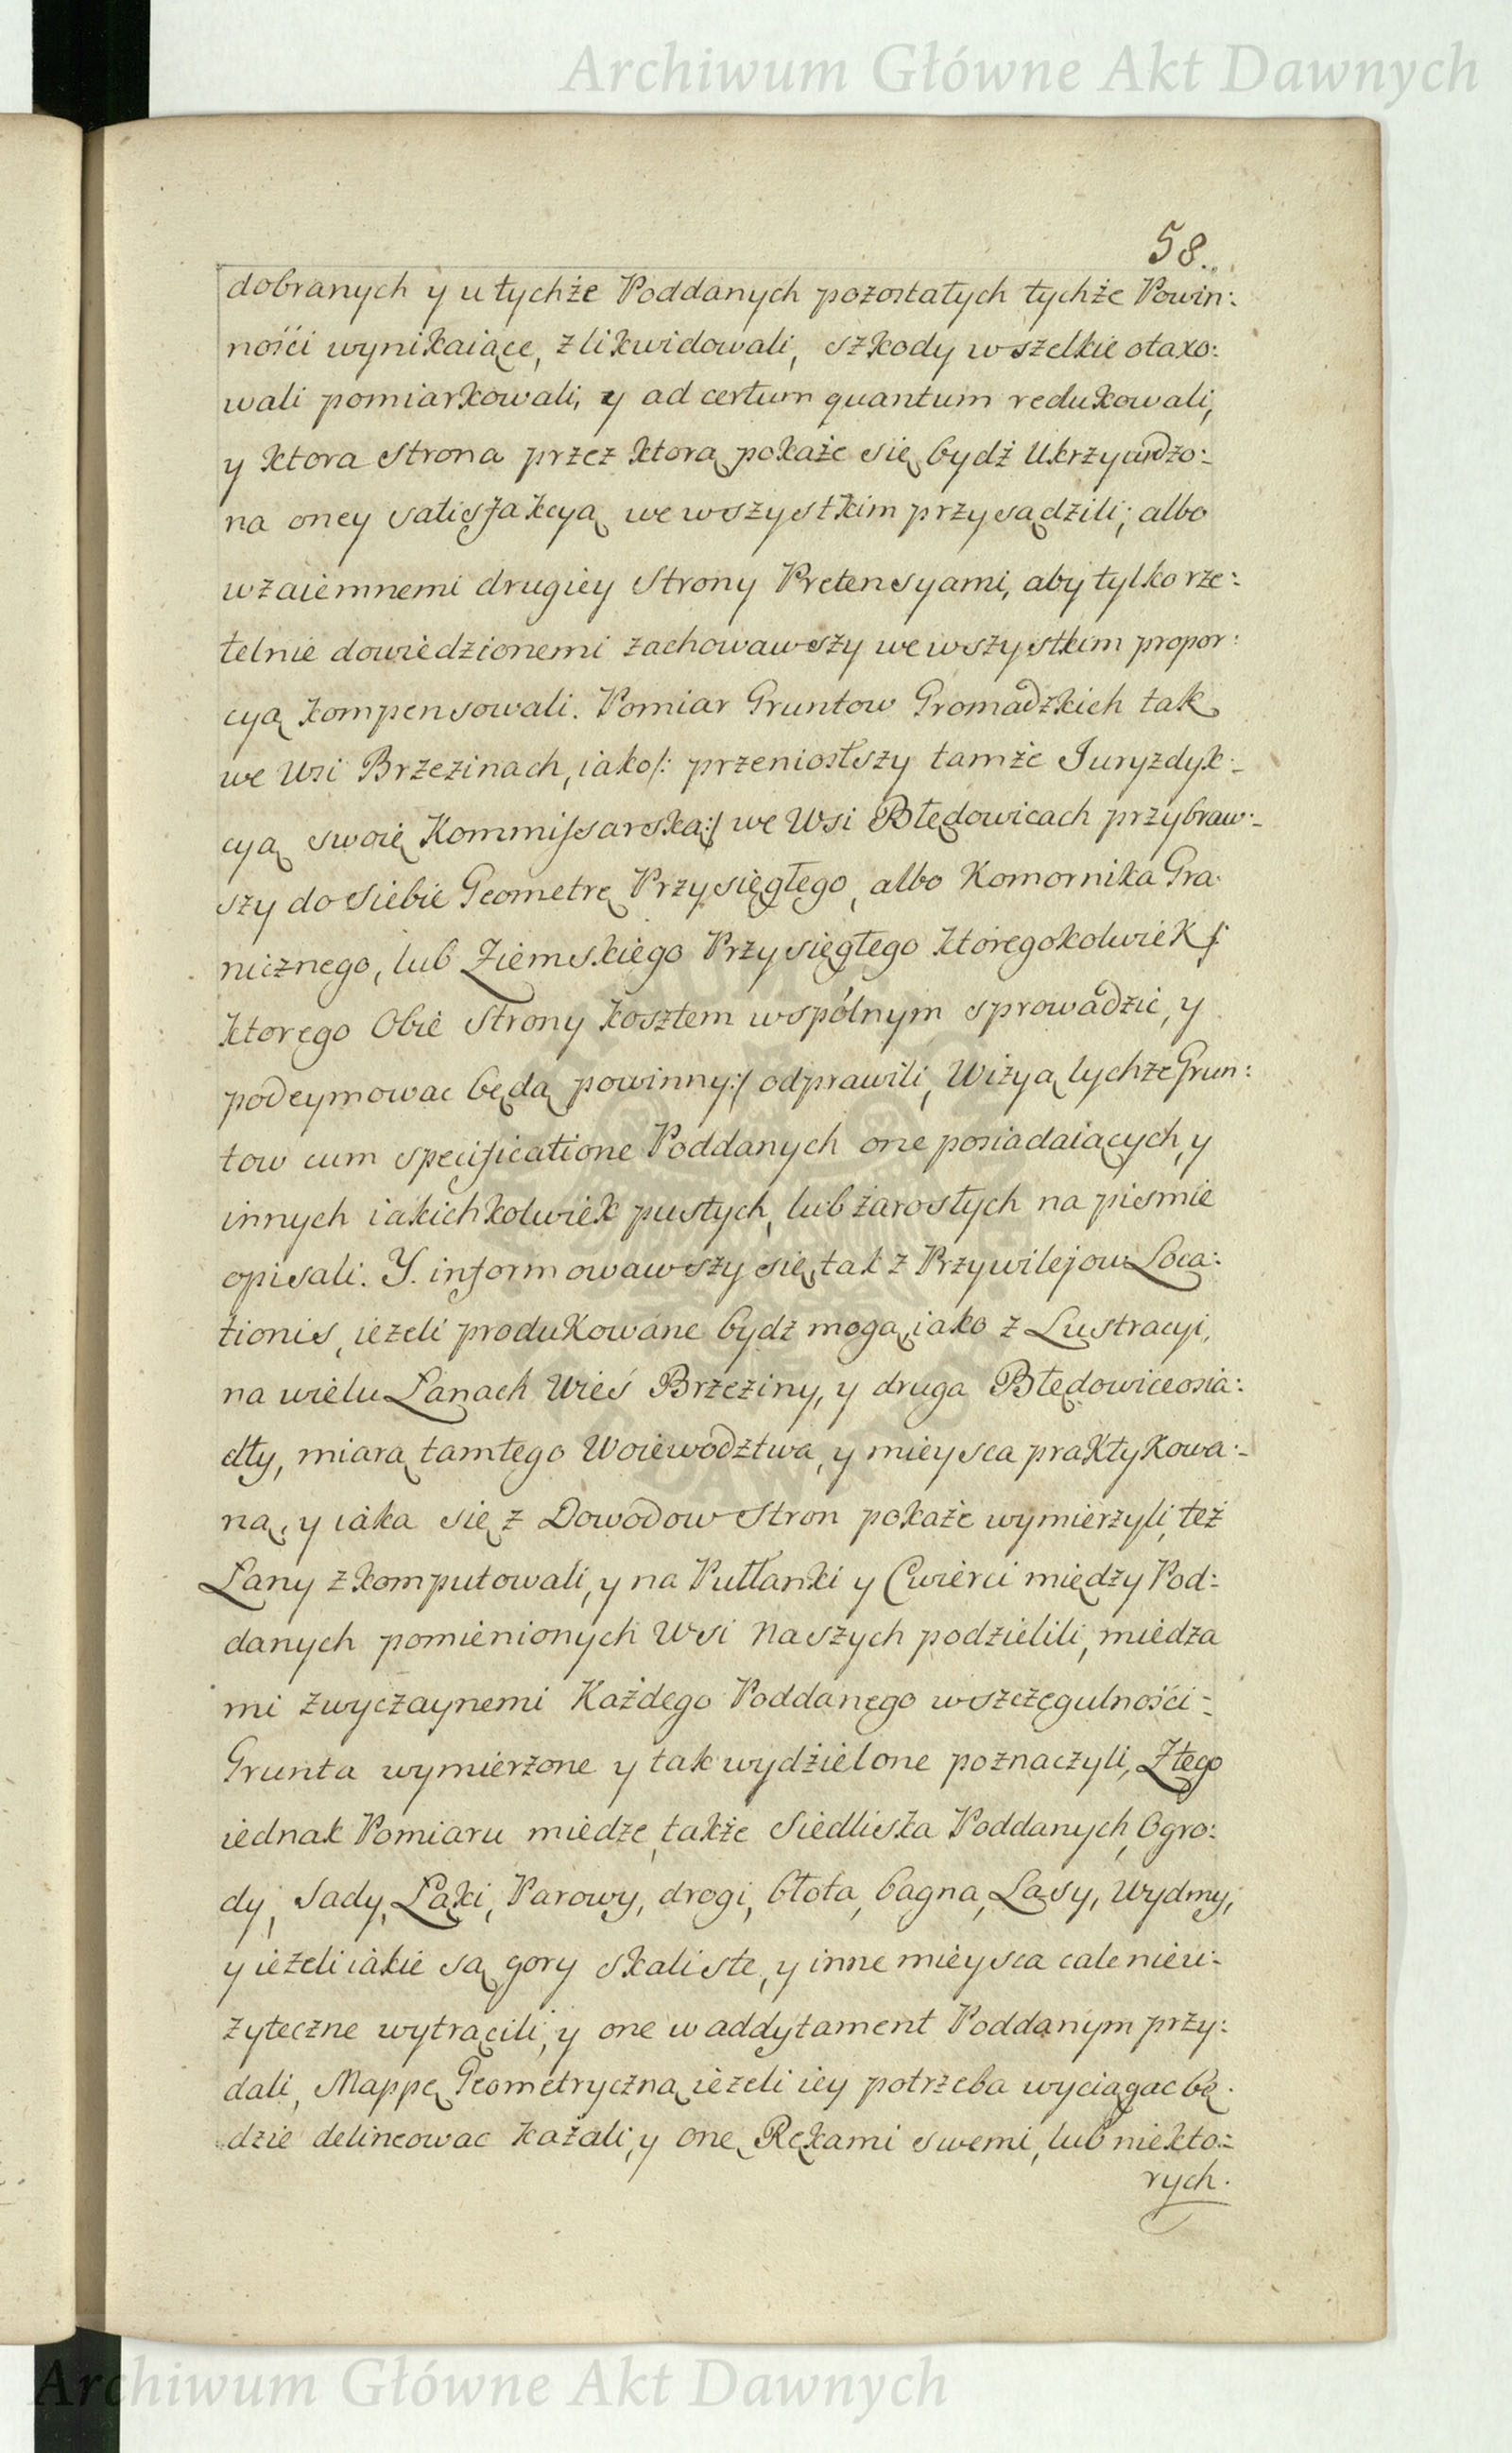 Archiwum Główne Akt Dawnych
58.
dobranych y u tychże Poddanych pozostałych tychże Powin:
nośći wynikaiące, zlikwidowali, szkody wszelkie otaxo:
wali pomiarkowali, y ad certum quantum redukowali,
y ktora Strona przez ktorą pokaże się bydź Ukrzywdzo:
na oney satisfakcyą we wszystkim przysądzili; albo
wzaiemnemi drugiey Strony Pretensyami, aby tylko rze:
telnie dowiedzionemi zachowawszy we wszystkim propor:
cyą kompensowali. Pomiar Gruntow Gromadzkich tak
we Wsi Brzezinach, iako/: przeniosłszy tamże Juryzdyk:
cyą swoię Kommissarską:/ we Wsi Błędowicach przybraw:
szy do siebie Geometrę Przysięgłego, albo Komornika Gra:
nicznego, lub Ziemskiego Przysięgłego ktoregokolwiek /:
ktorego Obie Strony kosztem wspólnym sprowadzic, y
podeymowac będą powinny:/ odprawili, Wizyą tychże Grun:
tow cum specificatione Poddanych one posiadaiących, y
innych iakichkolwiek pustych, lub zarosłych na pismie
opisali. Y. informowawszy się tak z Przywilejow Loca:
tionis, ieżeli produkowane bydź mogą, iako z Lustracyi,
na wielu Łanach Wieś Brzeziny, y druga Błędowice osia:
dły, miarą tamtego Woiewodztwa, y mieysca praktykowa:
ną, y iaka się z Dowodow Stron pokaże wymierzyli, też
Łany zkomputowali, y na Pułłanki y Cwierci między Pod:
danych pomienionych Wsi Naszych podzielili, miedza
mi zwyczaynemi Każdego Poddanego w szczęgulnośći
Grunta wymierzone y tak wydzielone poznaczyli, Z tego
iednak Pomiaru miedze, także Siedliska Poddanych, Ogro:
dy, Sady, Łąki, Parowy, drogi, błota, bagna, Lasy, Wydmy,
y ieżeli iakie są gory skaliste, y inne mieysca cale nieu:
żyteczne wytrącili, y one w addytament Poddanym przy:
dali, Mappę Geometryczną ieżeli iey potrzeba wyciągac bę:
dzie delineowac kazali, y onę Rękami swemi, lub niekto:
rych.
Archiwum Główne Akt Dawnych